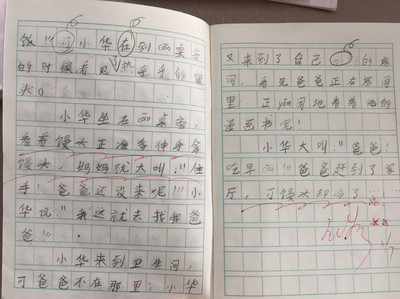 饭！”可小华在到丽桌旁
的时候看见热乎乎的馒
头。
小华坐在丽桌旁，
看着馒头正准备伸手拿
馒头，妈妈就大叫：“住
手！爸爸还没来呢！”小
华说：“我这就去找我爸
爸”。
小华来到卫生间，
可爸爸不在那里，小华
又来到了自己的房
间，看见爸爸正在房间
里，正 地看着他的
漫画书呢！
小华大叫：“爸爸！
吃早 ！”爸爸赶到了客
厅，可馒头却冷了！